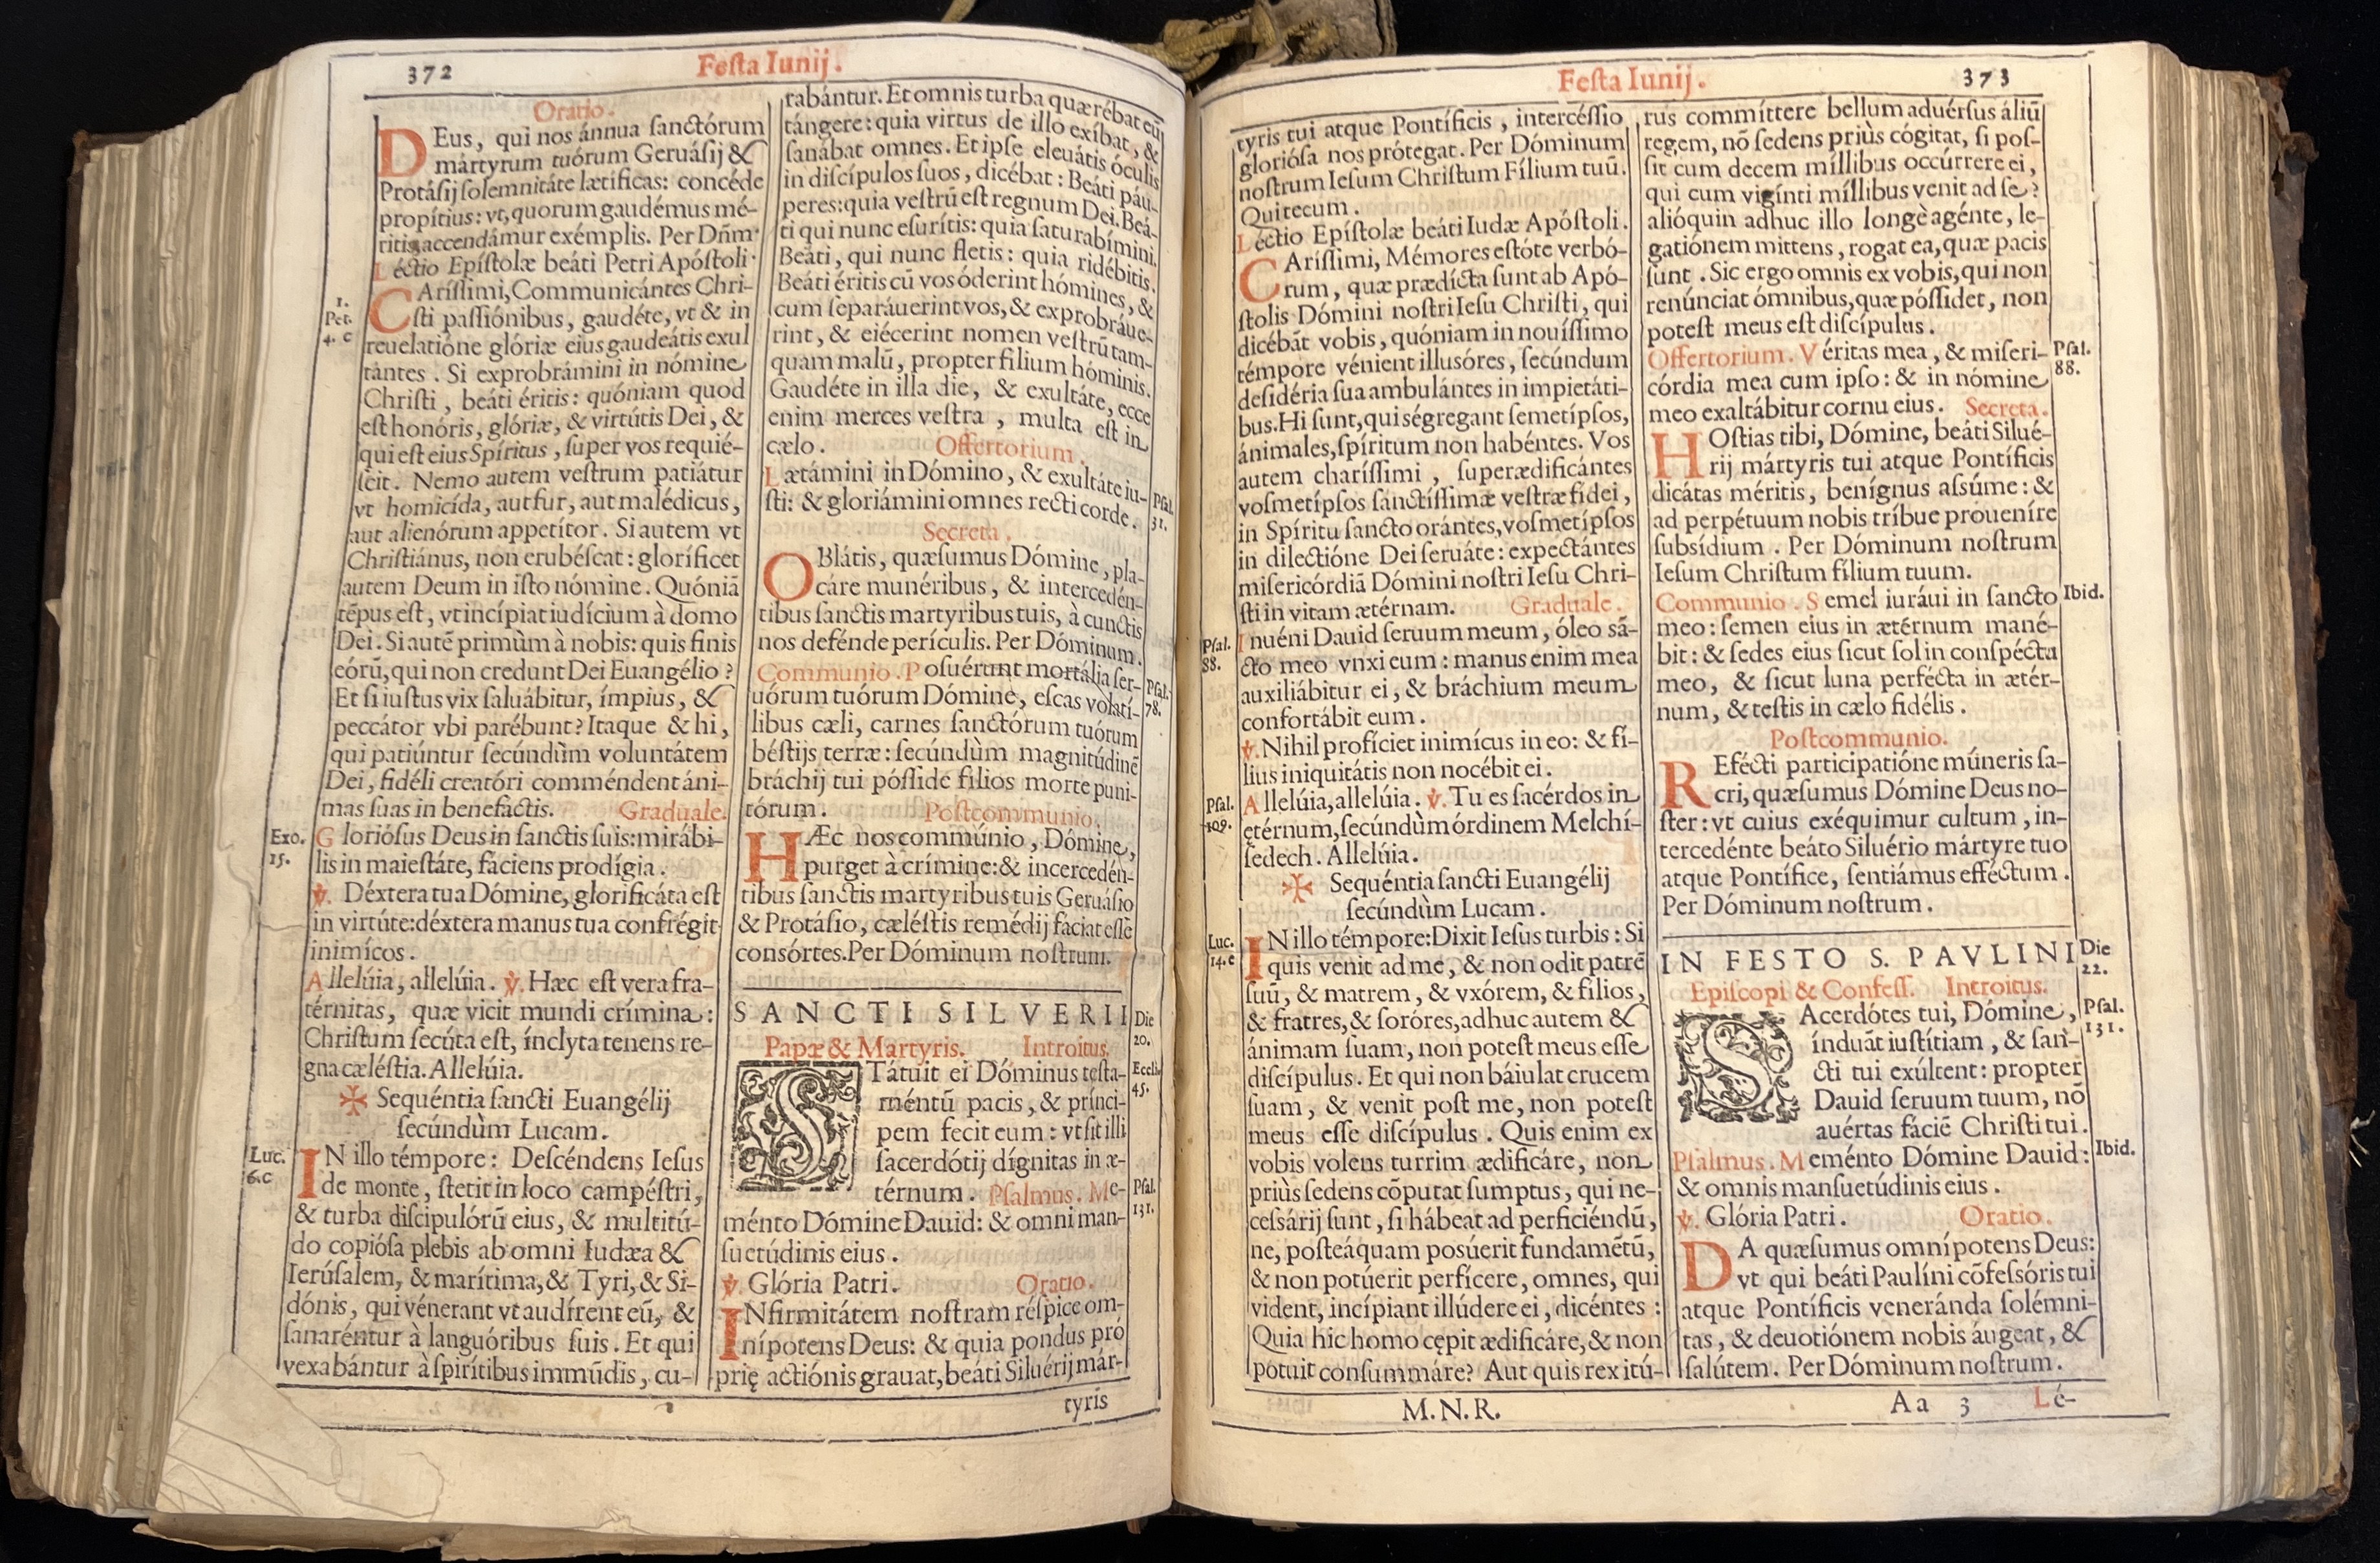 372
Festa Iunij.
Oratio.
DEus, qui nos ánnua sanctórum
mártyrum tuórum Geruásij &
Protásij solemnitáte lætíficas: concéde
propítius: vt, quorum gaudémus mé-
ritis accendámur exémplis. Per Dñm.
Léctio Epístolæ beáti Petri Apóstoli.
1.
Pet.
4. c
CAríssimi, Communicántes Chri-
sti passiónibus, gaudéte, vt & in
reuelatióne glóriæ eius gaudeátis exul
tántes. Si exprobrámini in nómine
Christi, beáti éritis: quóniam quod
est honóris, glóriæ, & virtútis Dei, &
qui est eius Spíritus, super vos requié-
scit. Nemo autem vestrum patiátur
vt homicída, aut fur, aut malédicus,
aut alienórum appetítor. Si autem vt
Christiánus, non erubéscat: gloríficet
autem Deum in isto nómine. Quóniã
tẽpus est, vt incípiat iudícium à domo
Dei. Si autẽ primùm à nobis: quis finis
eórũ, qui non credunt Dei Euangélio?
Et si iustus vix saluábitur, ímpius, &
peccátor vbi parébunt? Itaque & hi,
qui patiúntur secúndùm voluntátem
Dei, fidéli creatóri comméndent áni-
mas suas in benefactis. Graduale.
Exo.
15.
Gloriósus Deus in sanctis suis: mirábi-
lis in maiestáte, fáciens prodígia.
℣. Déxtera tua Dómine, glorificáta est
in virtúte: déxtera manus tua confrégit
inimícos.
Allelúia, allelúia. ℣. Hæc est vera fra-
térnitas, quæ vicit mundi crímina:
Christum secúta est, ínclyta tenens re-
gna cæléstia. Allelúia.
✠ Sequéntia sancti Euangélij
secúndùm Lucam.
Luc.
6. c
IN illo témpore: Descéndens Iesus
de monte, stetit in loco campéstri,
& turba discipulórũ eius, & multitú-
do copiósa plebis ab omni Iudæa &
Ierúsalem, & marítima, & Tyri, & Si-
dónis, qui vénerant vt audírent eũ, &
sanaréntur à languóribus suis. Et qui
vexabántur à spirítibus immũdis, cu-
rabántur. Et omnis turba quærébat eũ
tángere: quia virtus de illo exíbat, &
sanábat omnes. Et ipse eleuátis óculis
in discípulos suos, dicébat: Beáti páu-
peres: quia vestrũ est regnum Dei. Beá-
ti qui nunc esurítis: quia saturabímini.
Beáti, qui nunc fletis: quia ridébitis.
Beáti éritis cũ vos óderint hómines, &
cum separáuerint vos, & exprobráue-
rint, & eiécerint nomen vestrũ tam-
quam malũ, propter filium hóminis.
Gaudéte in illa die, & exultáte, ecce
enim merces vestra, multa est in
cælo. Offertorium.
Lætámini in Dómino, & exultáte iu-
sti: & gloriámini omnes recti corde.
Psal.
31.
Secreta.
OBlátis, quæsumus Dómine, pla-
cáre munéribus, & intercedén-
tibus sanctis martyribus tuis, à cunctis
nos defénde perículis. Per Dóminum.
Communio. Posuérunt mortália ser-
uórum tuórum Dómine, escas voláti-
libus cæli, carnes sanctórum tuórum
béstijs terræ: secúndùm magnitúdinẽ
bráchij tui pósside filios morte puni-
tórum. Postcommunio.
Psal.
78.
HÆc nos commúnio, Dómine,
purget à crímine: & incercedén-
tibus sanctis martyribus tuis Geruásio
& Protásio, cæléstis remédij fáciat essẽ
consórtes. Per Dóminum nostrum.
SANCTI SILVERII
Die
20.
Papæ & Martyris. Introitus.
Eccli.
45.
STátuit ei Dóminus testa-
méntũ pacis, & prínci-
pem fecit eum: vt sit illi
sacerdótij dígnitas in æ-
térnum. Psalmus. Me-
Psal.
131.
ménto Dómine Dauid: & omni man-
suetúdinis eius.
℣. Glória Patri. Oratio.
INfirmitátem nostram réspice om-
nípotens Deus: & quia pondus pró
prię actiónis grauat, beáti Siluérij már-
tyris
Festa Iunij.
373
tyris tui atque Pontíficis, intercéssio
gloriósa nos prótegat. Per Dóminum
nostrum Iesum Christum Fílium tuũ.
Qui tecum.
Léctio Epístolæ beáti Iudæ Apóstoli.
CAríssimi, Mémores estóte verbó-
rum, quæ prædícta sunt ab Apó-
stolis Dómini nostri Iesu Christi, qui
dicébãt vobis, quóniam in nouíssimo
témpore vénient illusóres, secúndum
desidéria sua ambulántes in impietáti-
bus. Hi sunt, qui ségregant semetípsos,
ánimales, spíritum non habéntes. Vos
autem charíssimi, superædificántes
vosmetípsos sanctíssimæ vestræ fidei,
in Spíritu sancto orántes, vosmetípsos
in dilectióne Dei seruáte: expectántes
misericórdiã Dómini nostri Iesu Chri-
sti in vitam ætérnam. Graduale.
Psal.
88.
Inuéni Dauid seruum meum, óleo sã-
cto meo vnxi eum: manus enim mea
auxiliábitur ei, & bráchium meum
confortábit eum.
℣. Nihil profíciet inimícus in eo: & fí-
lius iniquitátis non nocébit ei.
Psal.
109.
Allelúia, allelúia. ℣. Tu es sacérdos in
ętérnum, secúndùm órdinem Melchí-
sedech. Allelúia.
✠ Sequéntia sancti Euangélij
secúndùm Lucam.
Luc.
14. e
IN illo témpore: Dixit Iesus turbis: Si
quis venit ad me, & non odit patrẽ
suũ, & matrem, & vxórem, & filios,
& fratres, & soróres, adhuc autem &
ánimam suam, non potest meus esse
discípulus. Et qui non báiulat crucem
suam, & venit post me, non potest
meus esse discípulus. Quis enim ex
vobis volens turrim ædificáre, non
priùs sedens cõputat sumptus, qui ne-
cessárij sunt, si hábeat ad perficiéndũ,
ne, posteáquam posúerit fundamẽtũ,
& non potúerit perfícere, omnes, qui
vident, incípiant illúdere ei, dicéntes:
Quia hic homo cępit ædificáre, & non
potuit consummáre? Aut quis rex itú-
rus commíttere bellum aduérsus áliũ
regem, nõ sedens priùs cógitat, si pos-
sit cum decem míllibus occúrrere ei,
qui cum vigínti míllibus venit ad se?
alióquin adhuc illo longè agénte, le-
gatiónem mittens, rogat ea, quæ pacis
sunt. Sic ergo omnis ex vobis, qui non
renúnciat ómnibus, quæ póssidet, non
potest meus est discípulus.
Offertorium. Véritas mea, & miseri-
córdia mea cum ipso: & in nómine
meo exaltábitur cornu eius. Secreta.
Psal.
88.
HOstias tibi, Dómine, beáti Silué-
rij mártyris tui atque Pontíficis
dicátas méritis, benígnus assúme: &
ad perpétuum nobis tríbue prouenire
subsídium. Per Dóminum nostrum
Iesum Christum fílium tuum.
Communio. Semel iuráui in sancto
Ibid.
meo: semen eius in ætérnum mané-
bit: & sedes eius sicut sol in conspécta
meo, & sicut luna perfécta in ætér-
num, & testis in cælo fidélis.
Postcommunio.
REfécti participatióne múneris sa-
cri, quæsumus Dómine Deus no-
ster: vt cuius exéquimur cultum, in-
tercedénte beáto Siluério mártyre tuo
atque Pontífice, sentiámus efféctum.
Per Dóminum nostrum.
IN FESTO S. PAVLINI
Die
22.
Episcopi & Confess. Introitus.
SAcerdótes tui, Dómine,
índuãt iustítiam, & san-
cti tui exúltent: propter
Dauid seruum tuum, nõ
auértas fáciẽ Christi tui.
Psal.
131.
Psalmus. Meménto Dómine Dauid:
Ibid.
& omnis mansuetúdinis eius.
℣. Glória Patri. Oratio.
DA quæsumus omnípotens Deus:
vt qui beáti Paulíni cõfessóris tui
atque Pontíficis veneránda solémni-
tas, & deuotiónem nobis áugeat, &
salútem. Per Dóminum nostrum.
M.N.R.
Aa 3
Lé-